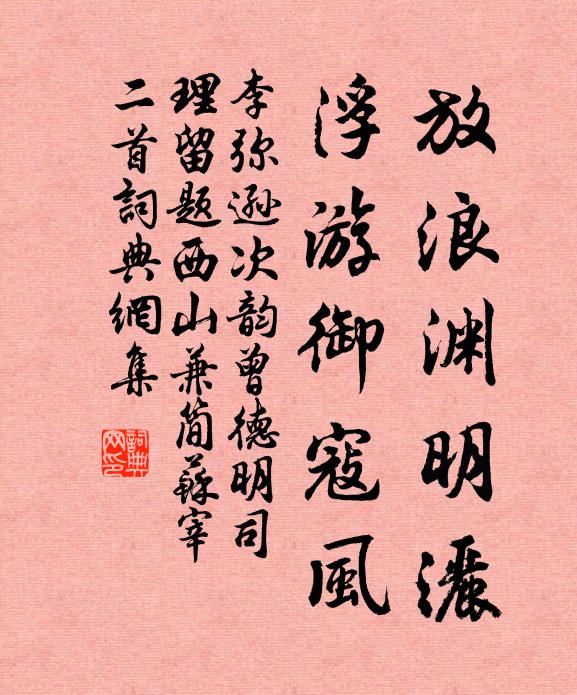 放浪渊明灑
浮游御寇風
李弥遜次韵曾德明司
理留题西山兼简蘇宰
二首詞典網集
詞典網印